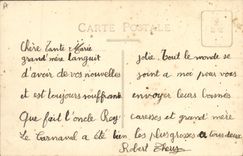 CARTE POSTALE
Chère Tante Marie
grand mère languit
d'avoir de vos nouvelles
et est toujours souffrante
Que fait l'oncle Roy
Le Carnaval a été bien
jolie. Tout le monde se
joint a moi pour vous
envoyer leurs bonnes
caresses et grand mère
les plus grosses a tous deux.
Robert